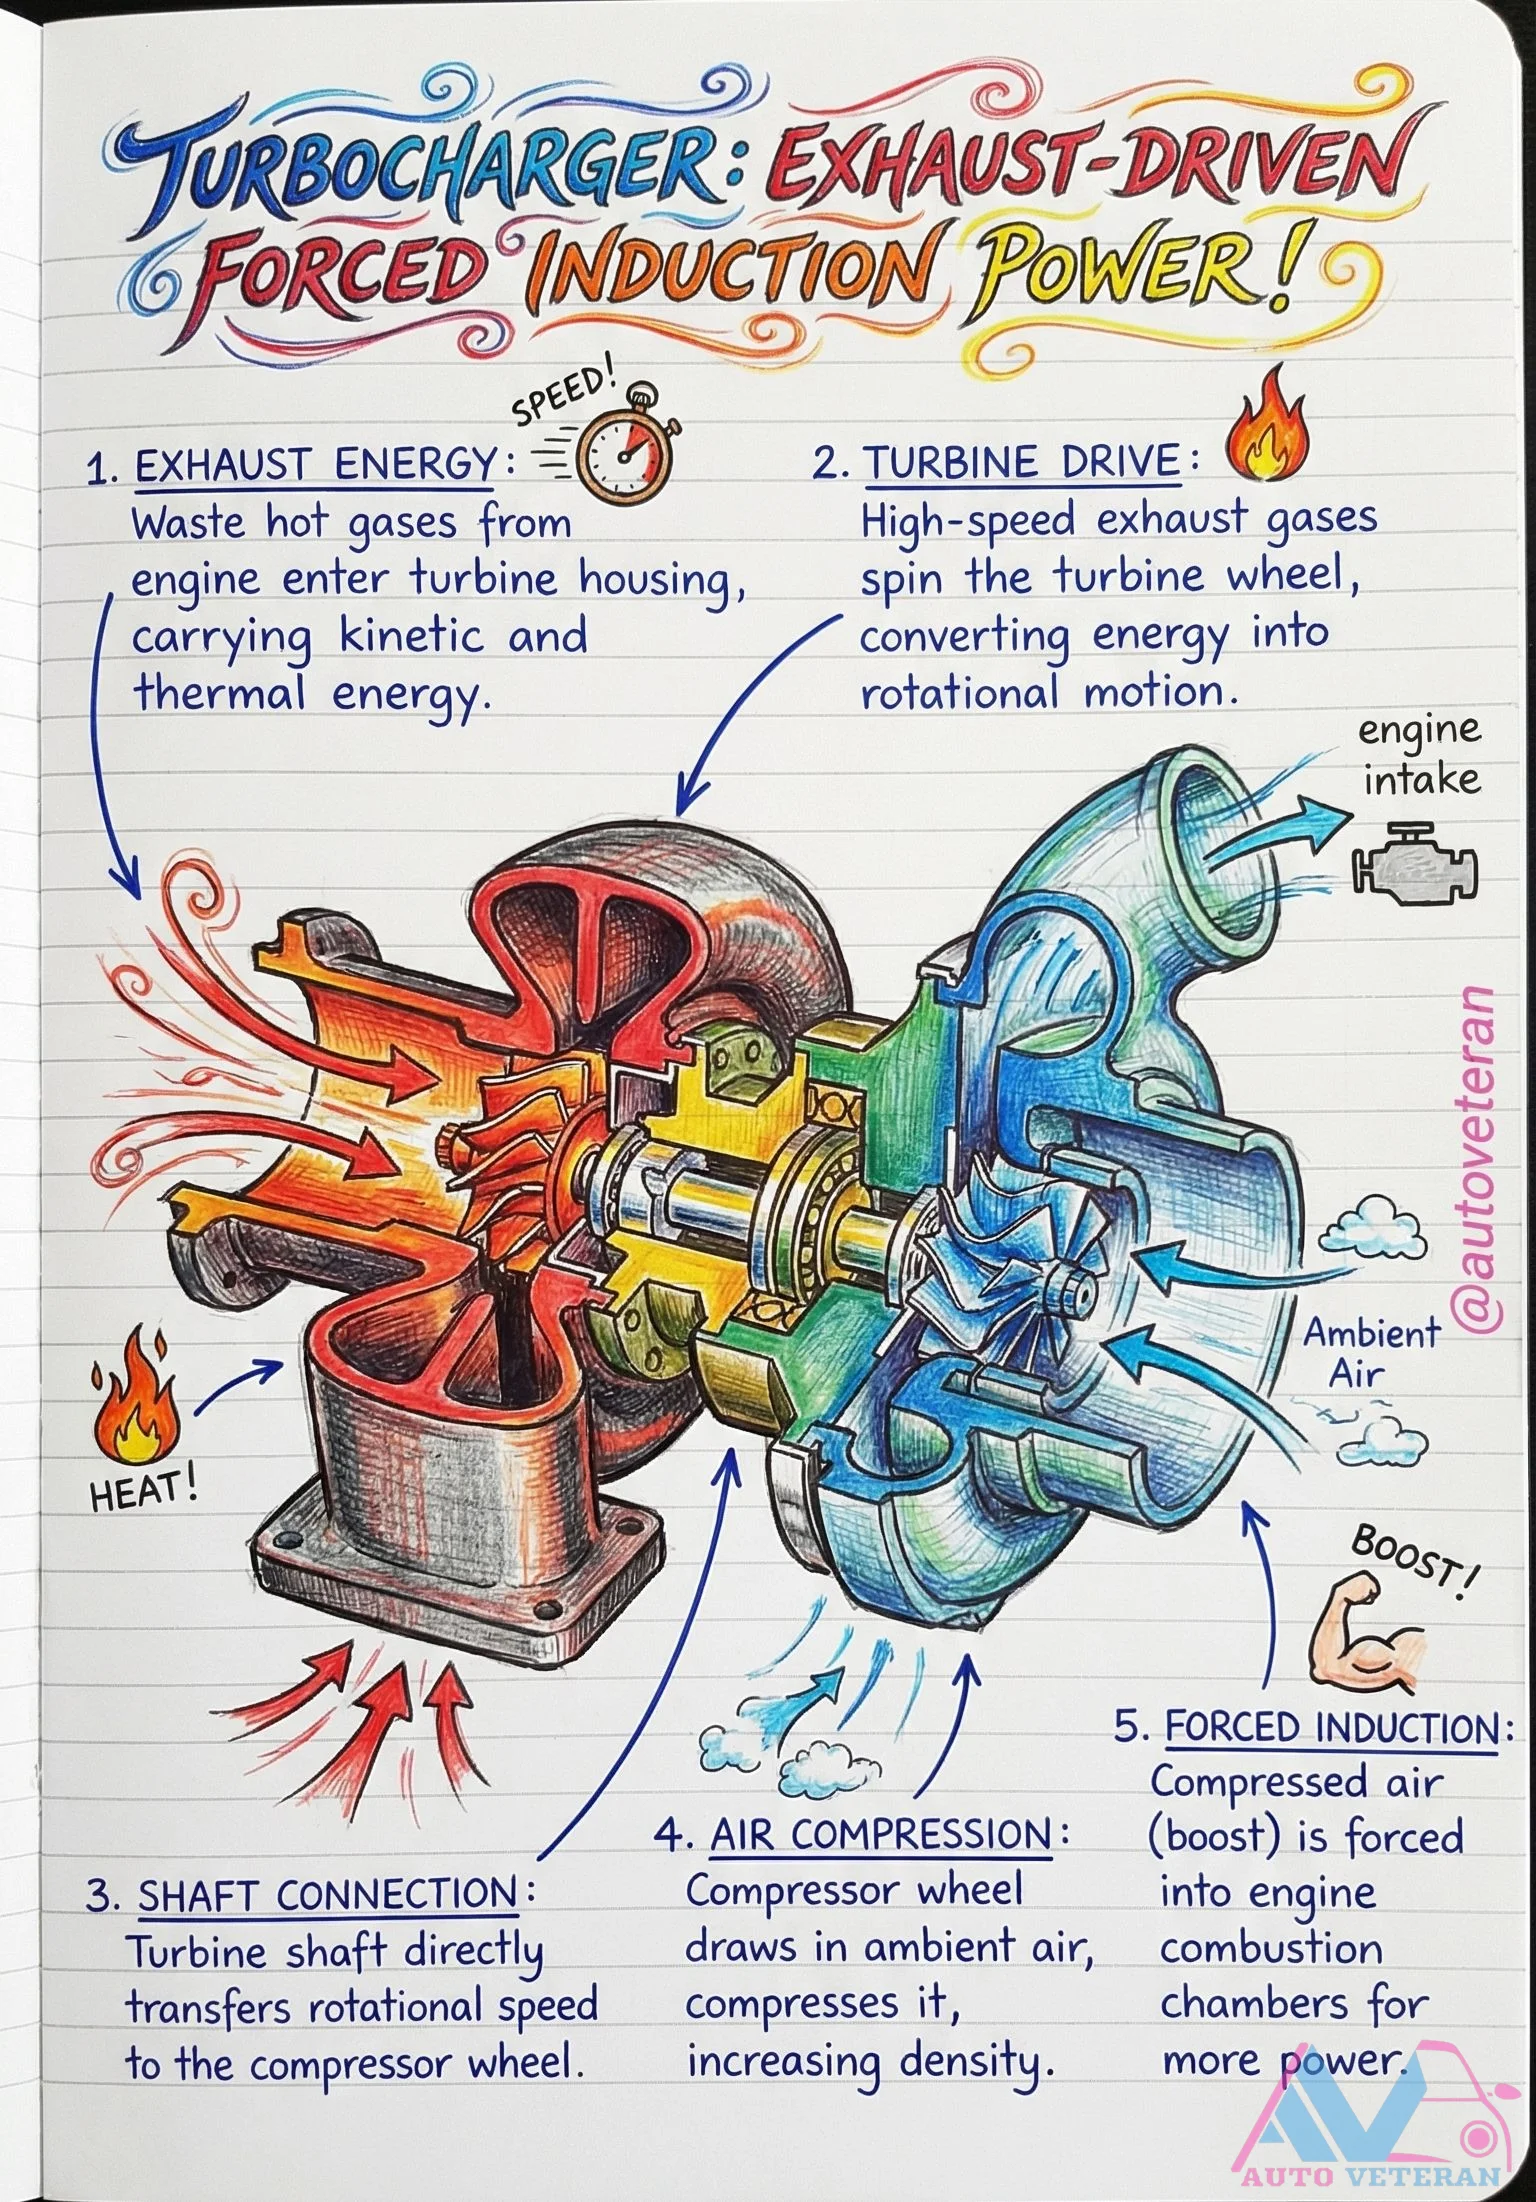 TURBOCHARGER: EXHAUST-DRIVEN
FORCED INDUCTION POWER!
SPEED!
1. EXHAUST ENERGY:
Waste hot gases from
engine enter turbine housing,
carrying kinetic and
thermal energy.
2. TURBINE DRIVE:
High-speed exhaust gases
spin the turbine wheel,
converting energy into
rotational motion.
engine
intake
@autoveteran
Ambient
Air
HEAT!
BOOST!
3. SHAFT CONNECTION:
Turbine shaft directly
transfers rotational speed
to the compressor wheel.
4. AIR COMPRESSION:
Compressor wheel
draws in ambient air,
compresses it,
increasing density.
5. FORCED INDUCTION:
Compressed air
(boost) is forced
into engine
combustion
chambers for
more power.
AV
AUTO VETERAN